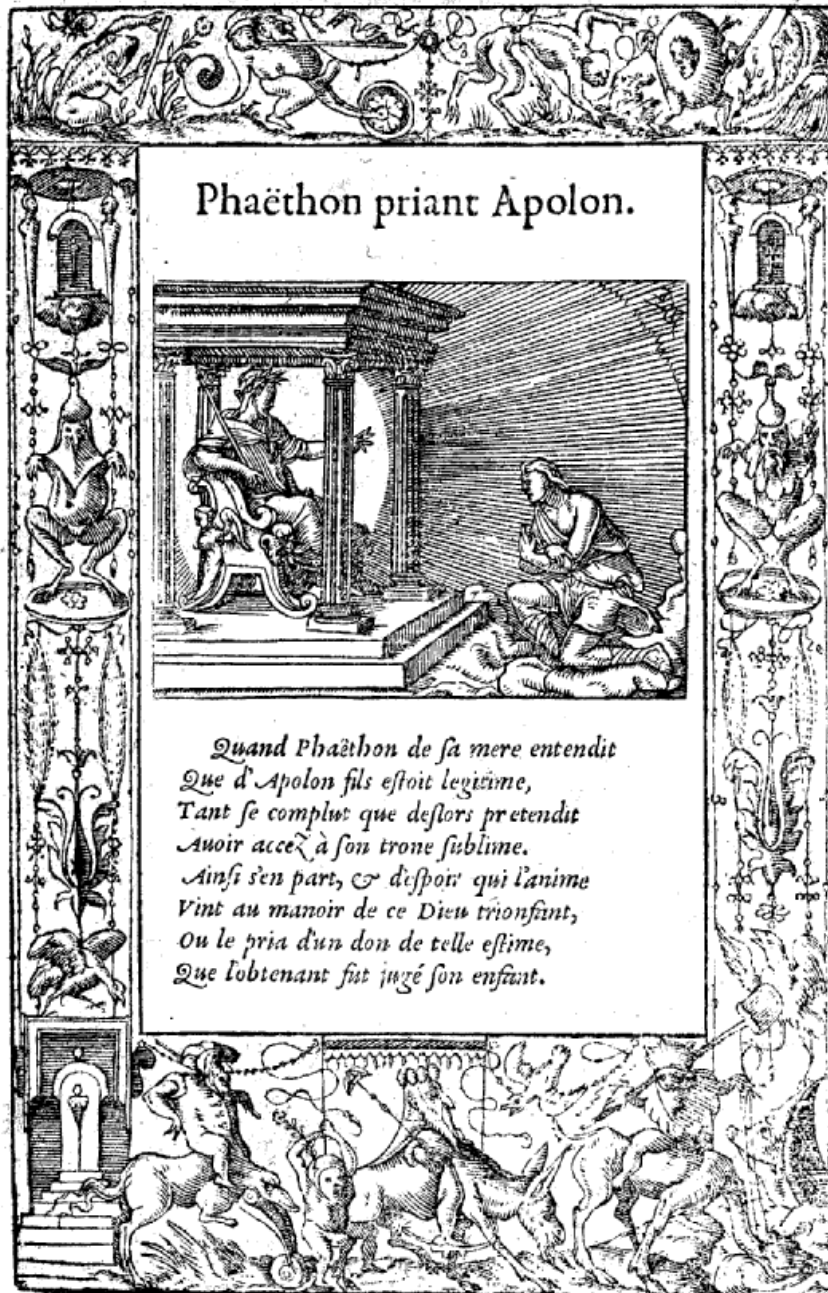 Phaëthon priant Apolon.
Quand Phaëthon de ſa mere entendit
Que d'Apolon fils eſtoit legitime,
Tant ſe complut que deſlors pretendit
Auoir accez à ſon trone ſublime.
Ainſi s'en part, & d'eſpoir qui l'anime
Vint au manoir de ce Dieu trionfant,
Ou le pria d'un don de telle eſtime,
Que l'obtenant fut jugé ſon enfant.